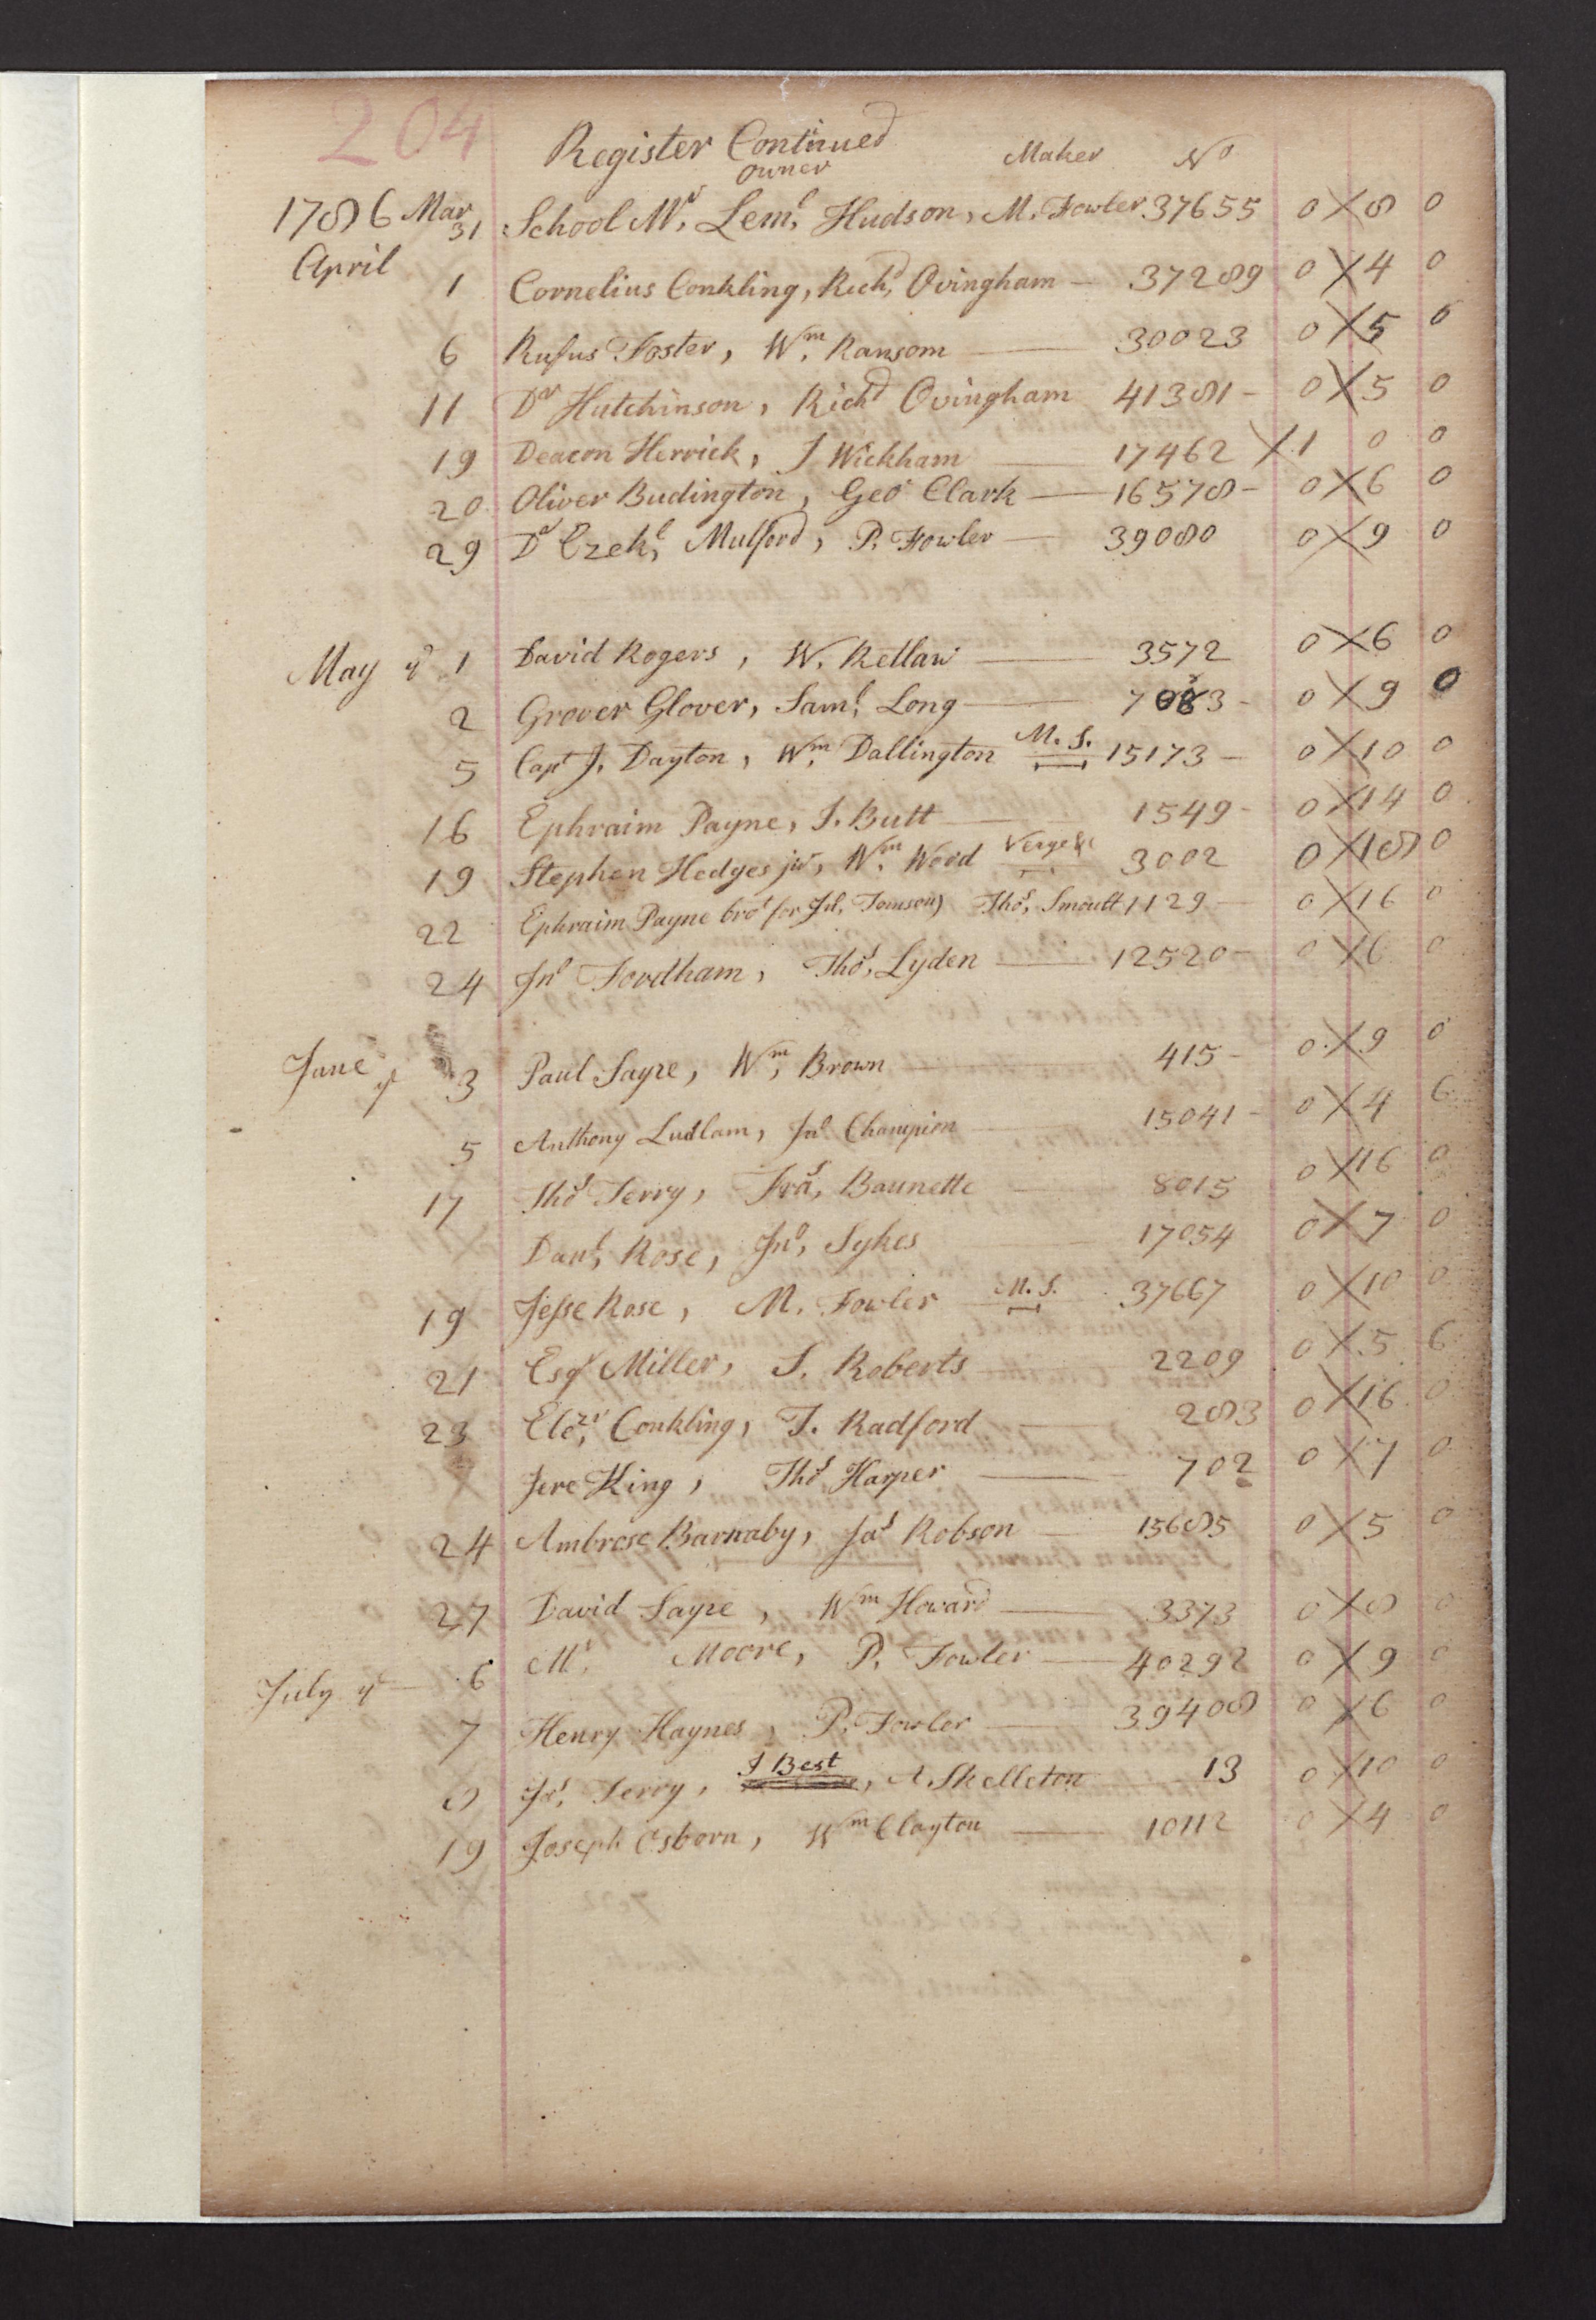 204
Register Continued
Owner Maker No
1786 Mar 31 School Mr. Leml. Hudson, M. Fowler 37655 0 X 8 0
April 1 Cornelius Conkling, Richd. Ovingham — 37289 0 X 4 0
6 Rufus Foster, Wm. Ransom — 30023 0 X 5 6
11 Dr Hutchinson, Richd Ovingham 41381 - 0 X 5 0
19 Deacon Herrick, J Wickham — 17462 X 1 0 0
20 Oliver Budington, Geo Clark — 16578 - 0 X 6 0
29 Dr Ezekl, Mulford, P. Fowler — 39080 0 X 9 0
May ye 1 David Rogers, W. Rellaw — 3572 0 X 6 0
2 Grover Glover, Saml. Long — 7083 - 0 X 9 0
5 Capt J. Dayton, Wm. Dallington M. S. 15173 - 0 X 10 0
16 Ephraim Payne, J. Butt — 1549 - 0 X 14 0
19 Stephen Hedges jur, Wm. Wood Verge &c 3002 0 X 18 0
22 Ephraim Payne brot for Jnl. Tomson) Thos, Smoult 1129 - 0 X 16 0
24 Jno Fordham, Thos, Lyden — 12520 - 0 X 6 0
June ye 3 Paul Sayre, Wm, Brown — 415 - 0 X 9 0
5 Anthony Ludlam, Jno Champion — 15041 - 0 X 4 6
17 Thos Terry, Fras, Baunette — 8015 0 X 16 0
Danl, Rose, Jno, Sykes — 17054 0 X 7 0
19 Jesse Rose, M. Fowler M. S. 37667 0 X 10 0
21 Esqr Miller, S. Roberts — 2209 0 X 5 6
23 Elezr, Conkling, T. Radford — 283 0 X 16 0
Jere King, Thos Harper — 702 0 X 7 0
24 Ambrose Barnaby, Jas Robson — 15685 0 X 5 0
27 David Sayre, Wm Howard — 3373 0 X 8 0
July ye — 6 Mr. Moore, P. Fowler — 40292 0 X 9 0
7 Henry Haynes, P. Fowler — 39408 0 X 6 0
8 Jas, Terry, J Best, A. Skelleton 13 0 X 10 0
19 Joseph Osborn, Wm Clayton — 10112 0 X 4 0